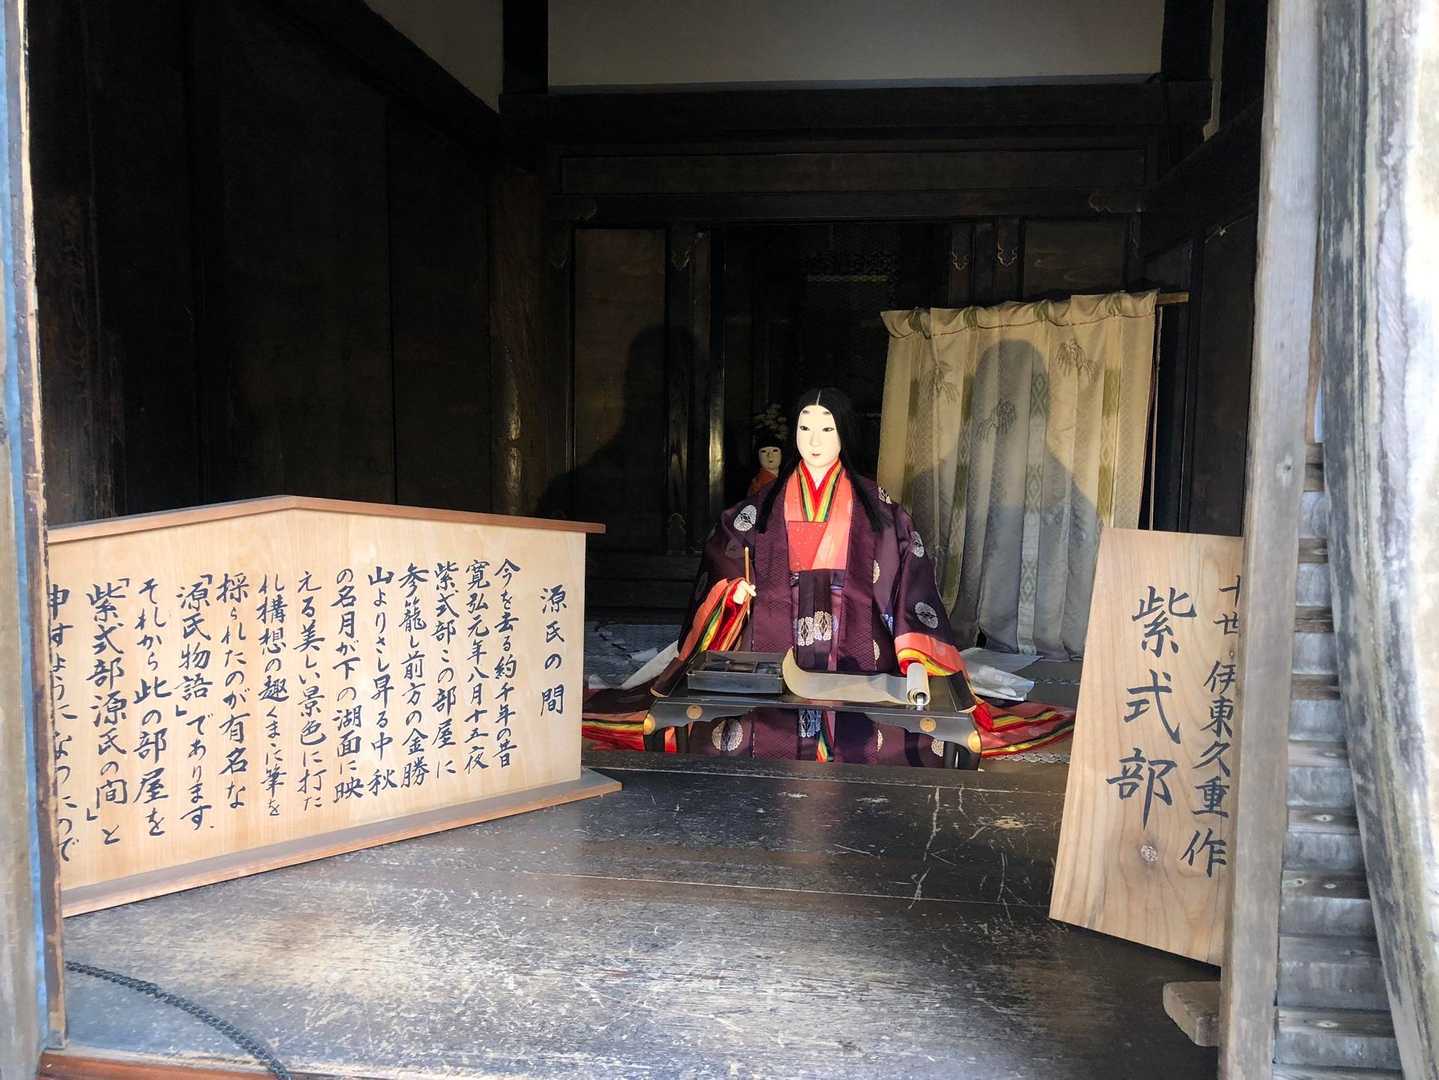 源氏の間
今を去る約千年の昔
寛弘元年八月十五夜
紫式部この部屋に
参籠し前方の金勝
山よりさし昇る中秋
の名月が下の湖面に映
える美しい景色に打た
れ構想の趣くまに筆を
採られたのが有名な
「源氏物語」であります。
それから此の部屋を
「紫式部源氏の間」と
申すようになったので
十世 伊東久重作
紫式部